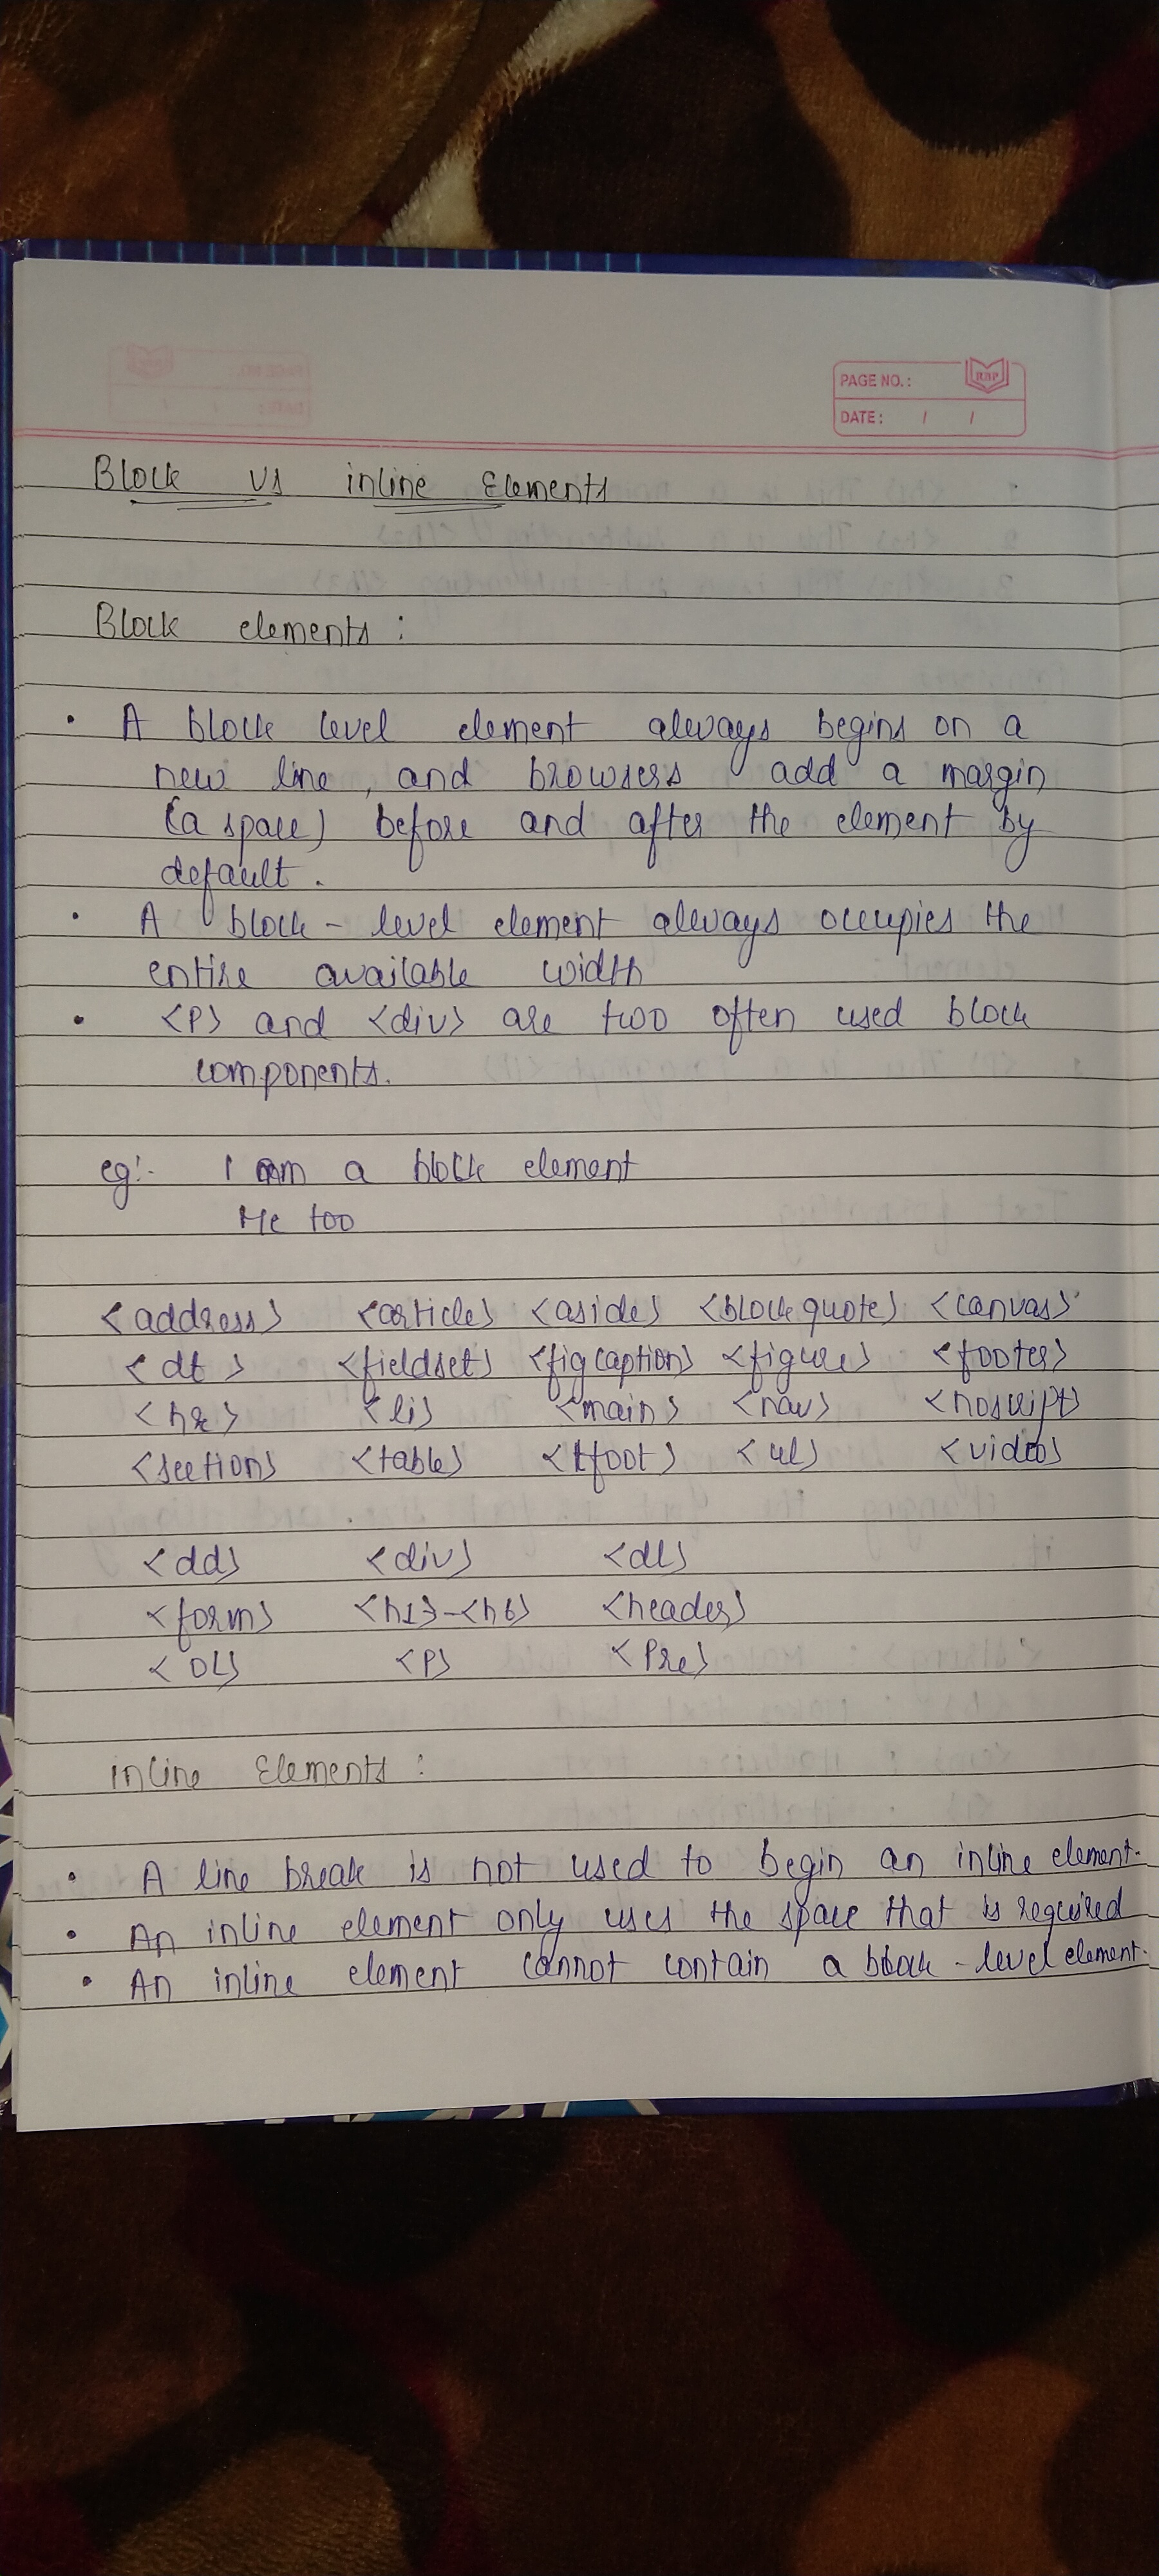 PAGE NO.:
RBP
DATE: / /
Block vs inline Elements
Block elements :
• A block level element always begins on a
new line, and browsers add a margin
(a space) before and after the element by
default.
• A block - level element always occupies the
entire available width
• <P> and <div> are two often used block
components.
eg:- I am a block element
Me too
<address> <article> <aside> <blockquote> <canvas>
<dt> <fieldset> <figcaption> <figure> <footer>
<hr> <li> <main> <nav> <noscript>
<section> <table> <tfoot> <ul> <video>
<dd> <div> <dl>
<form> <h1>-<h6> <header>
<OL> <P> <Pre>
inline Elements :
• A line break is not used to begin an inline element.
• An inline element only uses the space that is required
• An inline element cannot contain a block - level element.